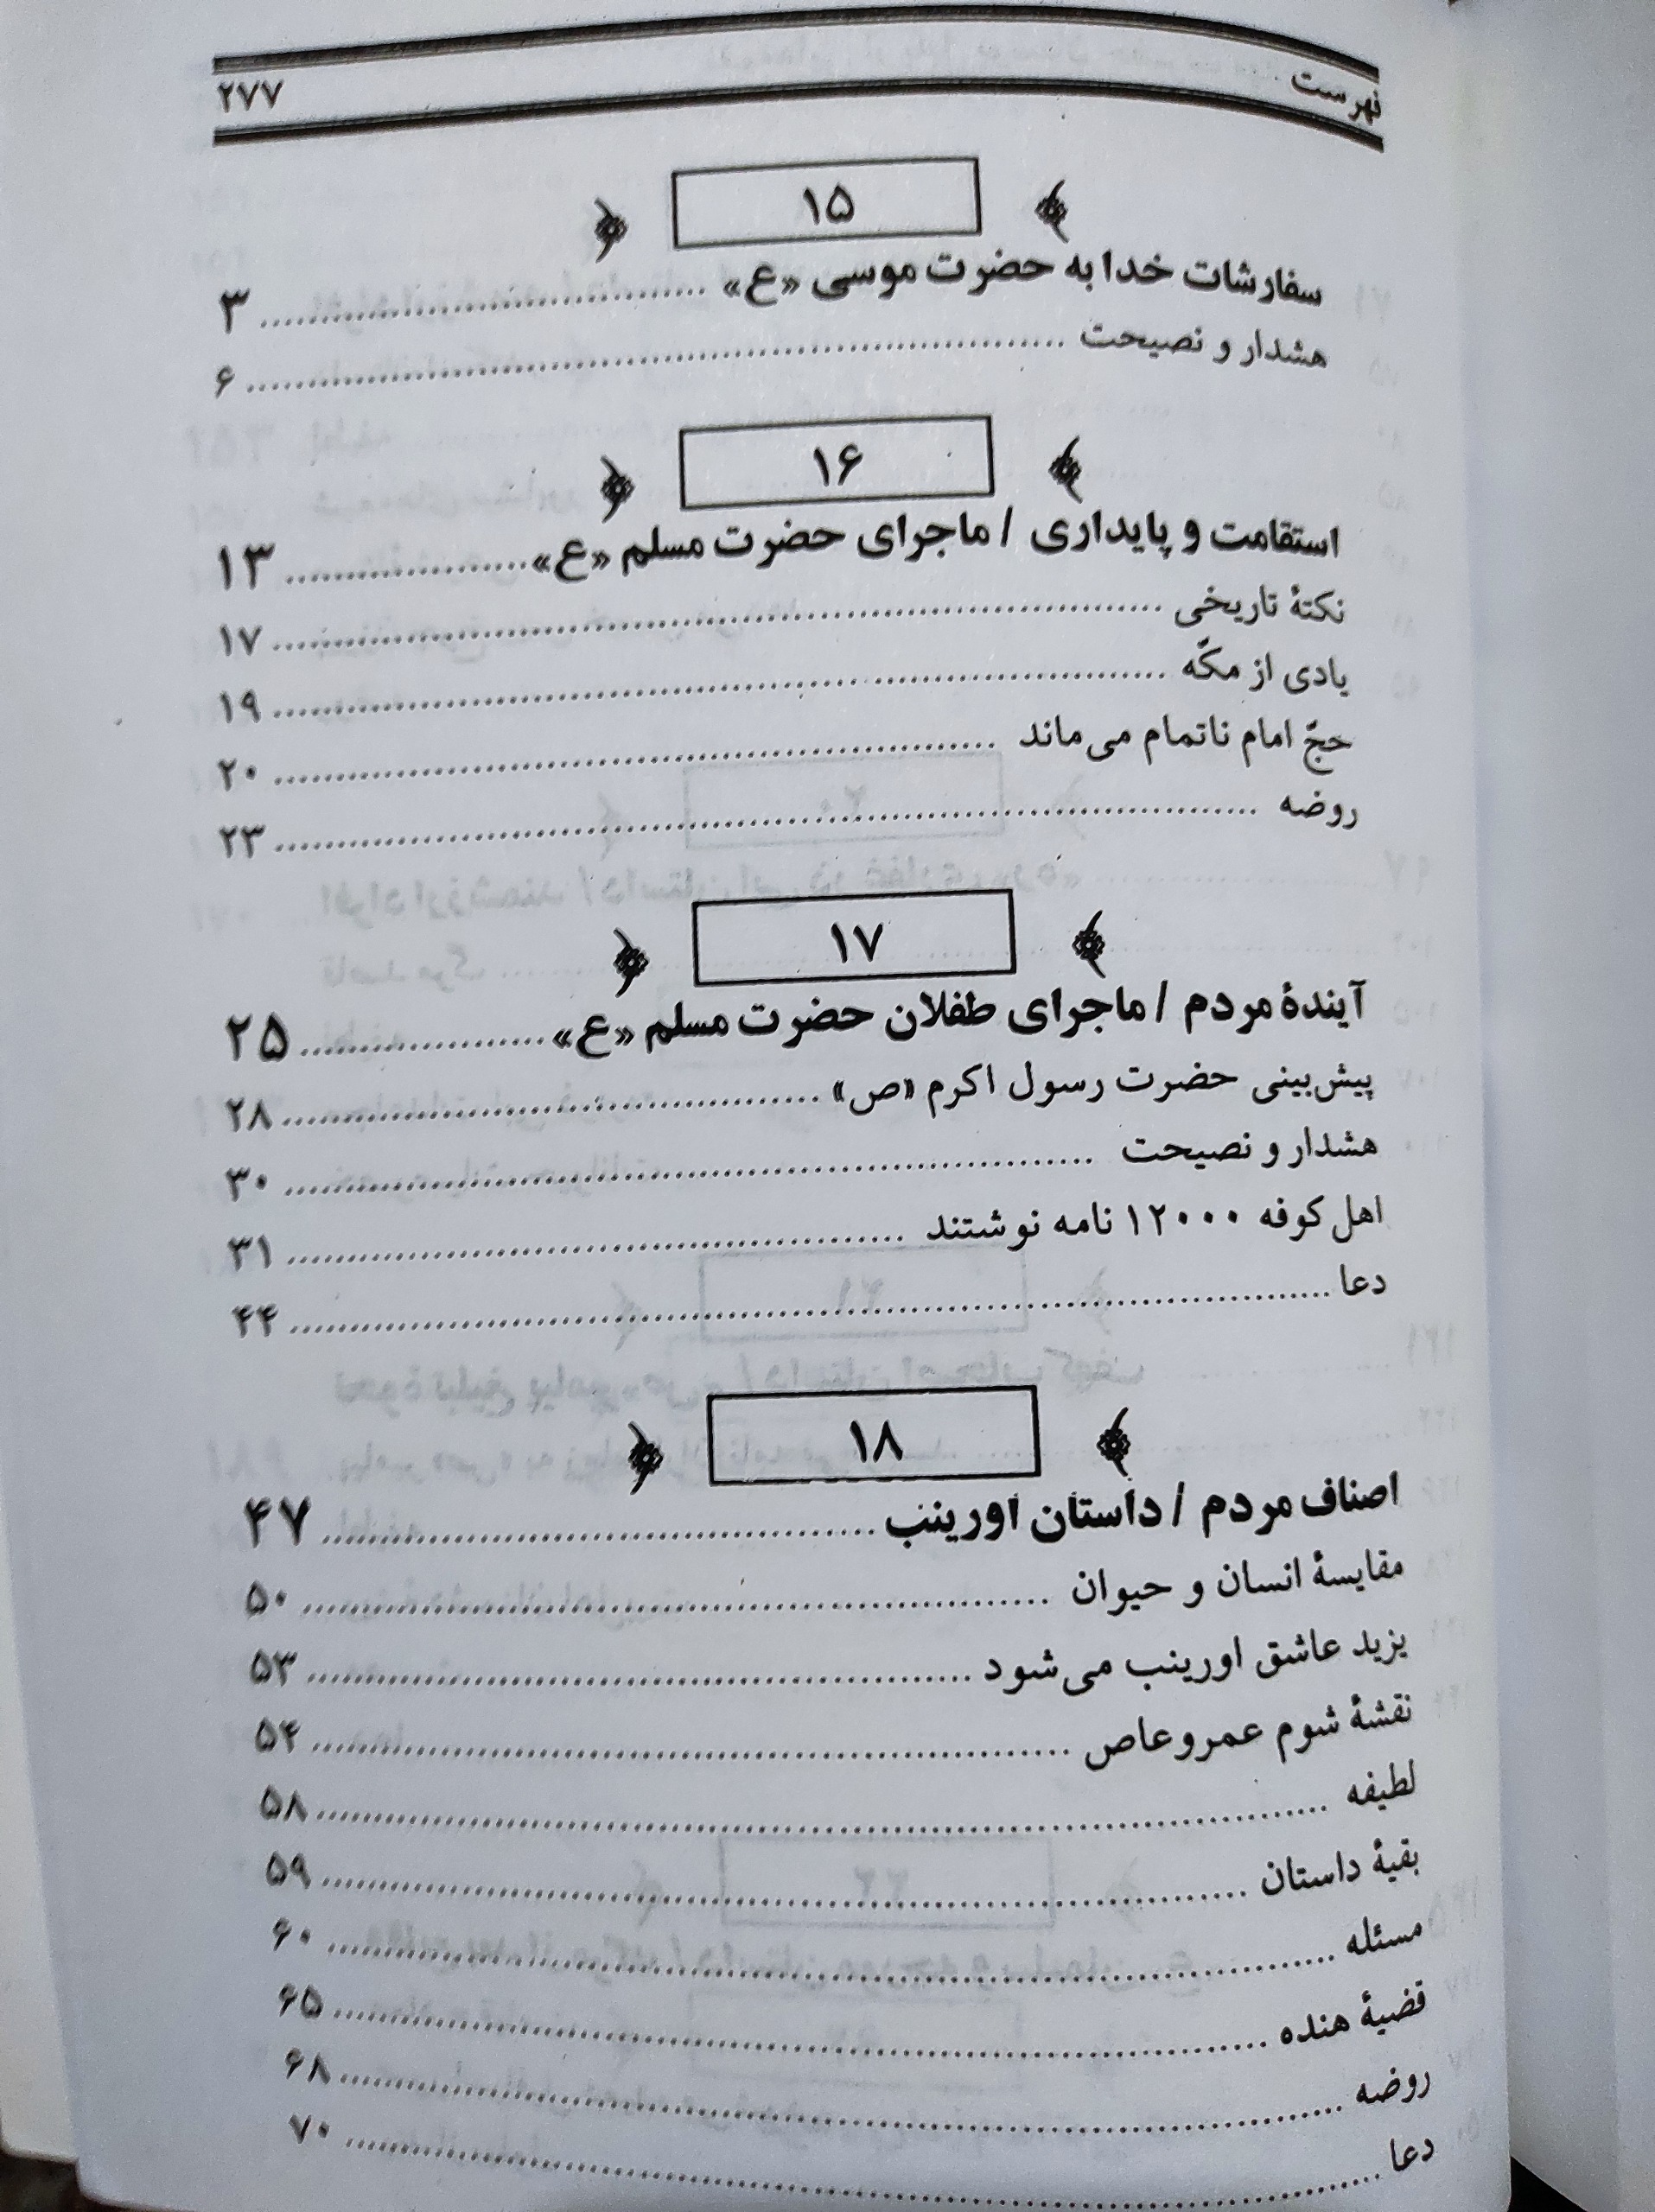 فهرست ... ۲۷۷
۱۵
سفارشات خدا به حضرت موسی «ع» ... ۳
هشدار و نصیحت ... ۶
۱۶
استقامت و پایداری / ماجرای حضرت مسلم «ع» ... ۱۳
نکتهٔ تاریخی ... ۱۷
یادی از مکّه ... ۱۹
حجّ امام ناتمام می‌ماند ... ۲۰
روضه ... ۲۳
۱۷
آیندهٔ مردم / ماجرای طفلان حضرت مسلم «ع» ... ۲۵
پیش‌بینی حضرت رسول اکرم «ص» ... ۲۸
هشدار و نصیحت ... ۳۰
اهل کوفه ۱۲۰۰۰ نامه نوشتند ... ۳۱
دعا ... ۴۴
۱۸
اصناف مردم / داستان اورینب ... ۴۷
مقایسهٔ انسان و حیوان ... ۵۰
یزید عاشق اورینب می‌شود ... ۵۳
نقشهٔ شوم عمروعاص ... ۵۴
لطیفه ... ۵۸
بقیهٔ داستان ... ۵۹
مسئله ... ۶۰
قضیهٔ هنده ... ۶۵
روضه ... ۶۸
دعا ... ۷۰